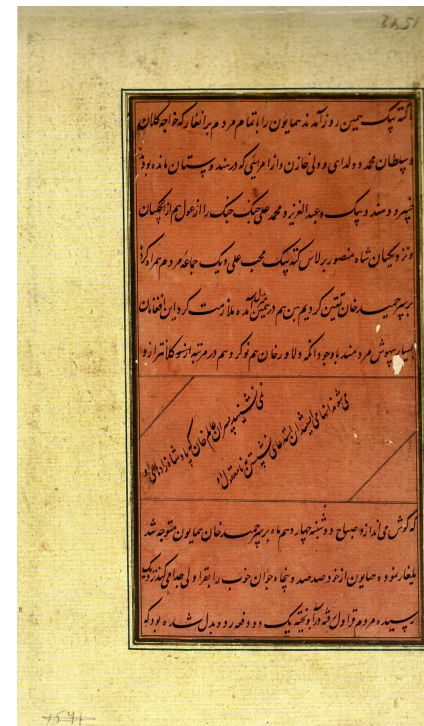 کته بیک همین روز آمدند همایون را با تمام مردم برانغار که خواجه کلان
و سلطان محمد دولدای و ولی خازن و از امرایی که در هندوستان مانده بود
خسرو و هندو بیک و عبدالعزیز و محمد علی جنک جنک را از غول هم از ایچکیان
و نزدیکیان شاه منصور برلاس کته بیک محب علی و یک جماعه مردم همراه کرده
بر سر حمید خان تعین کردیم بین هم در همین منزل آمده ملازمت کرد این افغانان
بسیار بیهوش مردمند باوجود آنکه دلاور خان هم نوکر دهم در مرتبه ازو کلانتر ازو
نمی نشیند پسران عالم خان که پادشاه زاده
می شوند اینها می ایستند این استدعای نشستن
که گوش می اندازد صباح دوشنبه چهاردهم ماه بر سر حمید خان همایون متوجه شد
یلغار نموده همایون از خود صد صد و پنجاه جوان خوب را بقراولی جدا می کند نزدیک
رسیده مردم قراول رفته در آویخته یک دو دفعه رد و بدل شده بود که